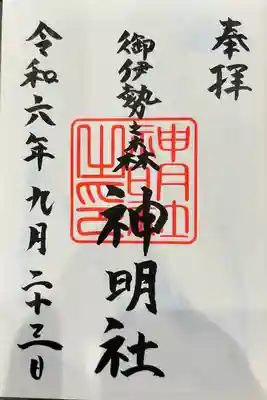 奉拝
御伊勢之森
神明社
令和六年九月二十三日
神明社之印